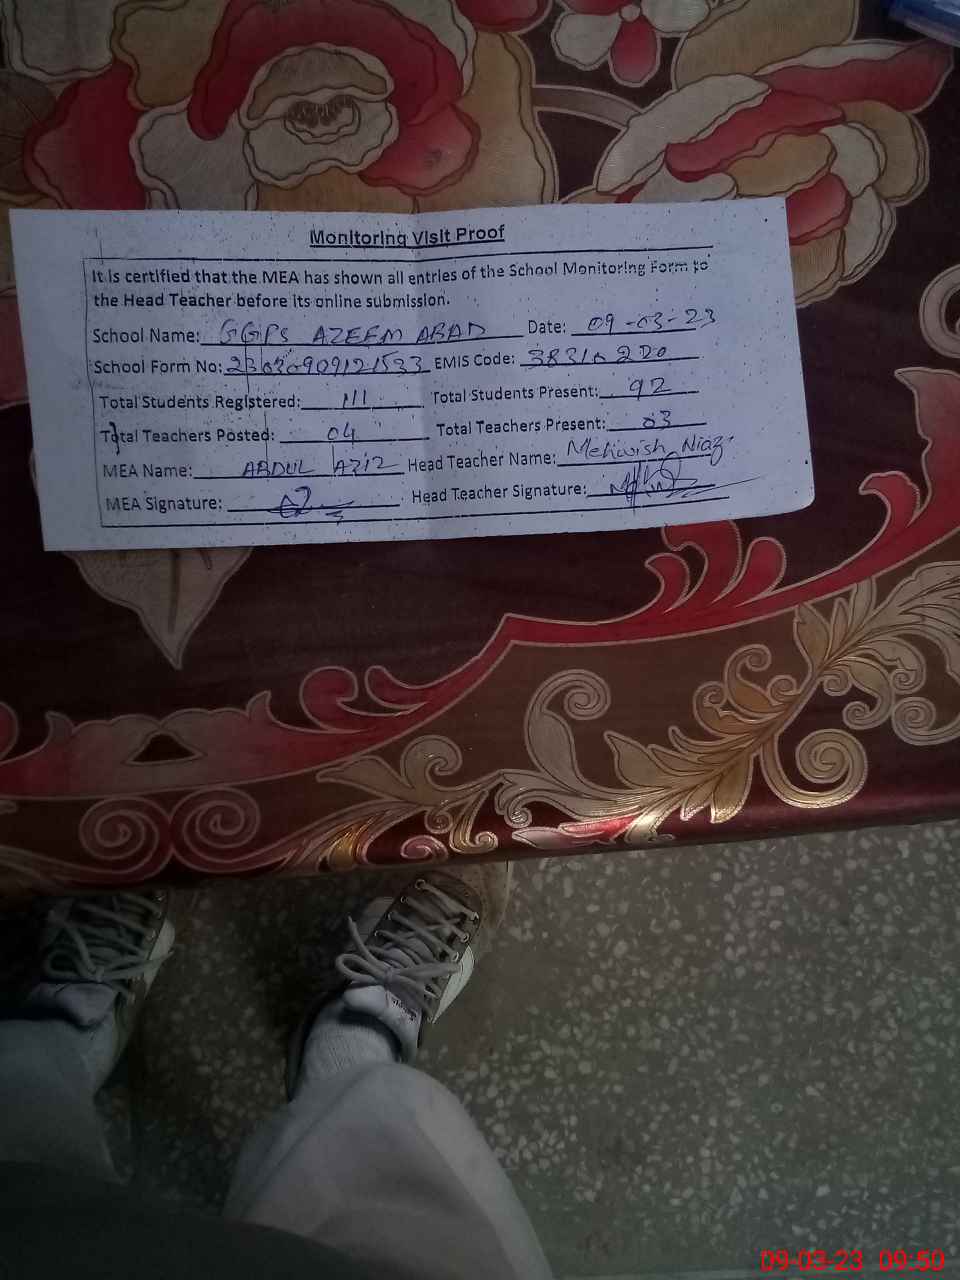 Monitoring Visit Proof
It is certified that the MEA has shown all entries of the School Monitoring Form to
the Head Teacher before its online submission.
School Name: GGPS AZEEM ABAD Date: 09-03-23
School Form No: 23030909121533 EMIS Code: 38310220
Total Students Registered: 111 Total Students Present: 92
Total Teachers Posted: 04 Total Teachers Present: 03
MEA Name: ABDUL AZIZ Head Teacher Name: Mehwish Niaz
MEA Signature: Head Teacher Signature:
09-03-23 09:50